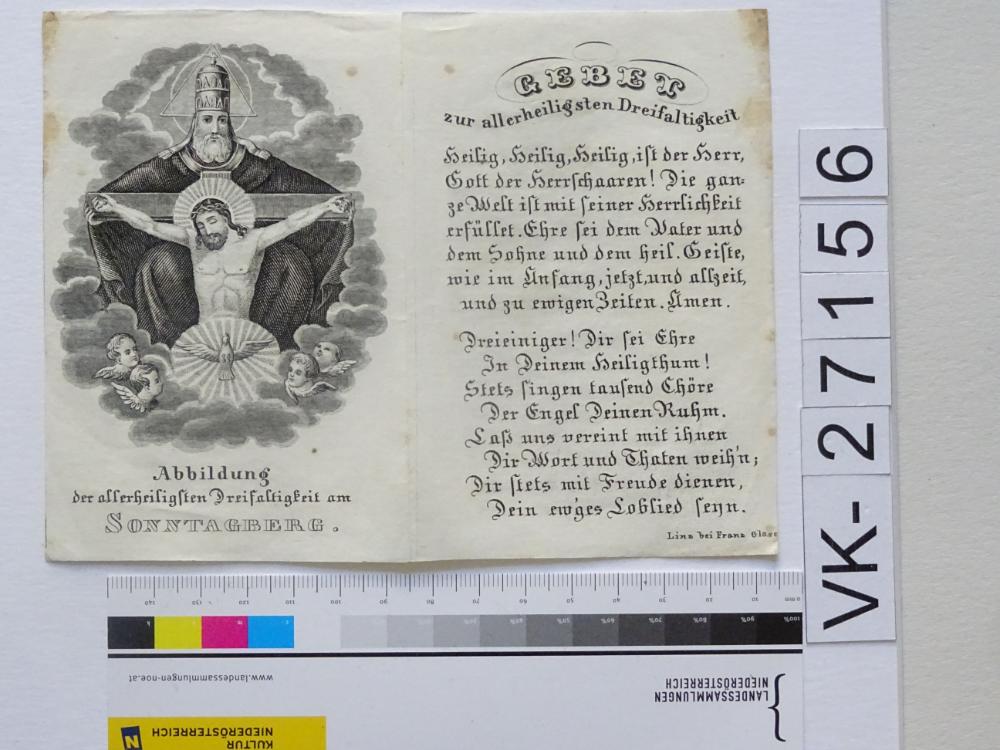 Abbildung
der allerheiligsten Dreifaltigkeit am
SONNTAGBERG.
GEBET
zur allerheiligsten Dreifaltigkeit
Heilig, Heilig, Heilig, ist der Herr,
Gott der Herrschaaren! Die gan=
ze Welt ist mit seiner Herrlichkeit
erfüllet. Ehre sei dem Vater und
dem Sohne und dem heil. Geiste,
wie im Anfang, jetzt, und allzeit,
und zu ewigen Zeiten. Amen.
Dreieiniger! Dir sei Ehre
In Deinem Heiligthum!
Stets singen tausend Chöre
Der Engel Deinen Ruhm.
Laß uns vereint mit ihnen
Dir Wort und Thaten weih'n;
Dir stets mit Freude dienen,
Dein ew'ges Loblied seyn.
Linz bei Franz
VK-27156
140 130 120 110 100 90 80 70 60 50 40 30 20 10 0 mm
www.landessammlungen-noe.at
LANDESSAMMLUNGEN
NIEDERÖSTERREICH
KULTUR
NIEDERÖSTERREICH
N